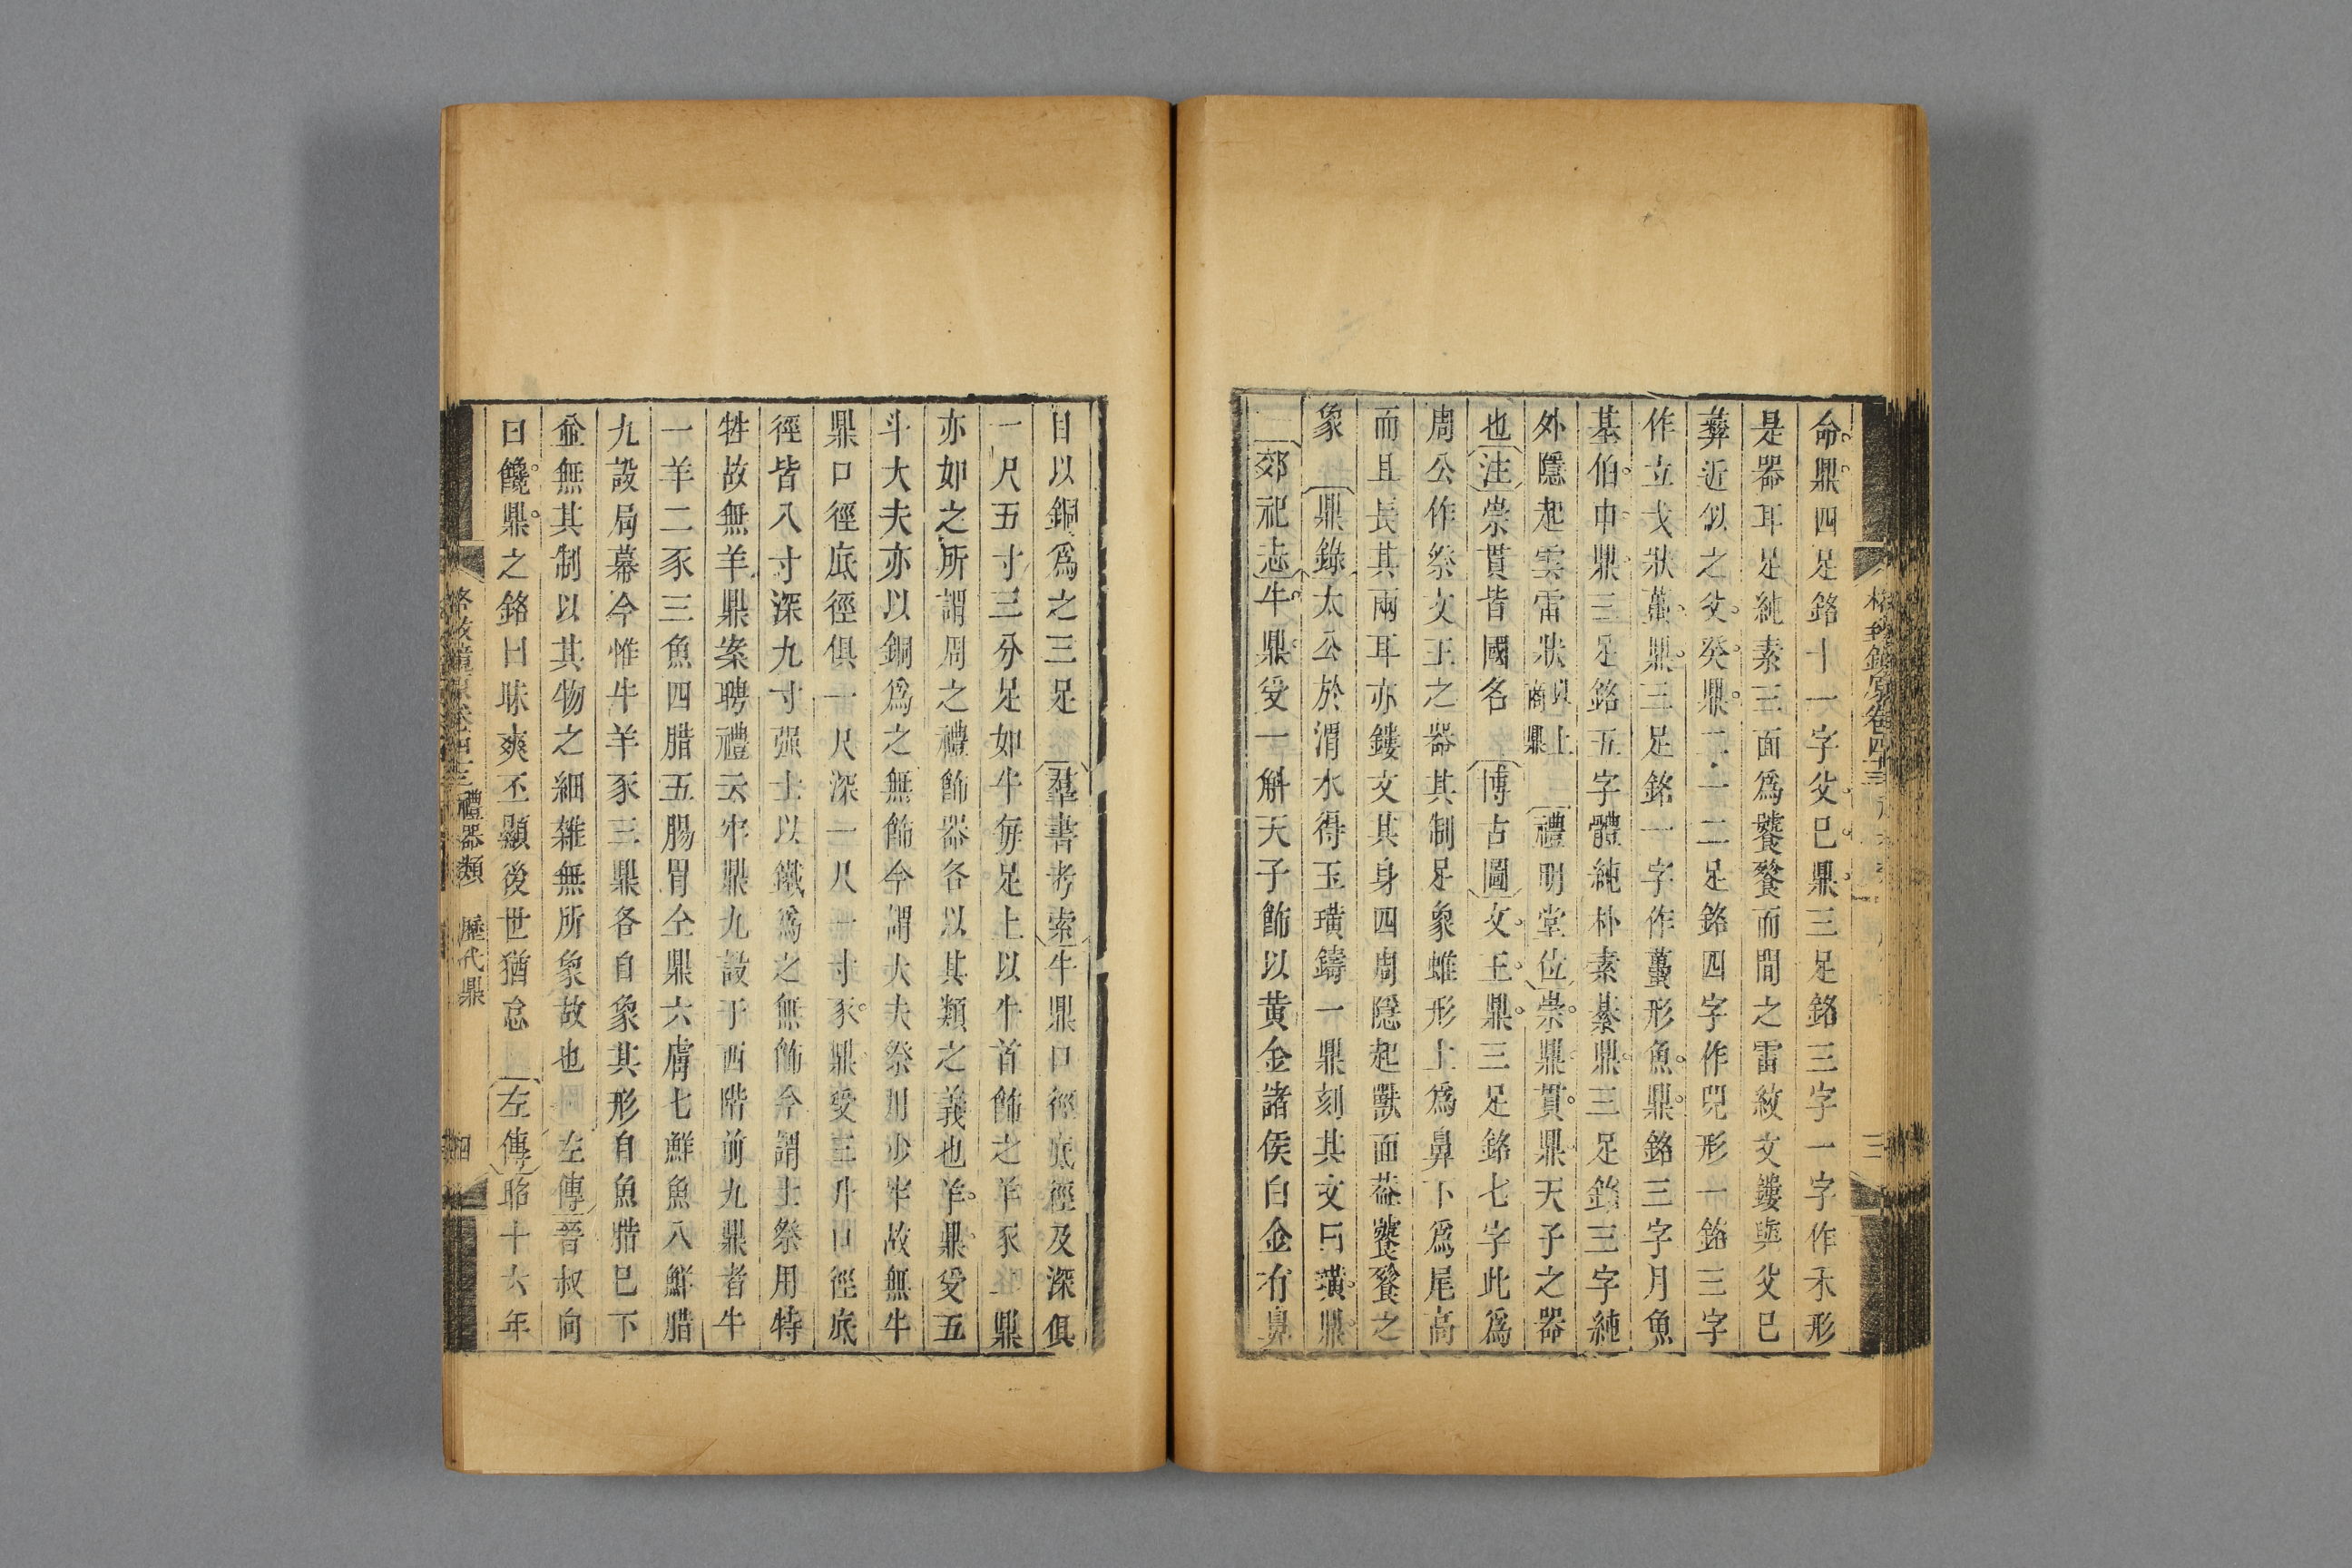 命鼎四足銘十一字父已鼎三足銘三字一字作禾形
是器耳足純素三面爲饕餮而間之雷紋文鏤與父已
彝近似之父癸鼎二一二足銘四字作兕形一銘三字
作立戈狀蠆鼎三足銘一字作蠆形魚鼎銘三字月魚
基伯申鼎三足銘五字體純朴素綦鼎三足銘三字純
外隱起雲雷狀以上商鼎 禮明堂位崇鼎貫鼎天子之器
也注崇貫皆國名 博古圖文王鼎三足銘七字此爲
周公作祭文王之器其制足象蜼形上爲鼻下爲尾高
而且長其兩耳亦鏤文其身四周隱起獸面蓋饕餮之
象 鼎錄太公於渭水得玉璜鑄一鼎刻其文曰璜鼎
三郊祀志牛鼎受一斛天子飾以黃金諸侯白金有鼻
目以銅爲之三足 羣書考索牛鼎口徑底徑及深俱
一尺五寸三分足如牛每足上以牛首飾之羊豕 鼎
亦如之所謂周之禮飾器各以其類之義也羊鼎受五
斗大夫亦以銅爲之無飾今謂大夫祭用少牢故無牛
鼎口徑底徑俱一尺深一尺一寸豕鼎受三升口徑底
徑皆八寸深九寸强士以鐵爲之無飾今謂士祭用特
牲故無羊鼎案聘禮云牢鼎九設于西階前九鼎者牛
一羊二豕三魚四腊五腸胃仝鼎六膚七鮮魚八鮮腊
九設扃幕今惟牛羊豕三鼎各自象其形自魚腊已下
並無其制以其物之細雜無所象故也 左傳晉叔向
曰饞鼎之銘曰昧爽丕顯後世猶怠 左傳昭十六年
格致鏡原卷四十三 禮器類 歷代鼎 四